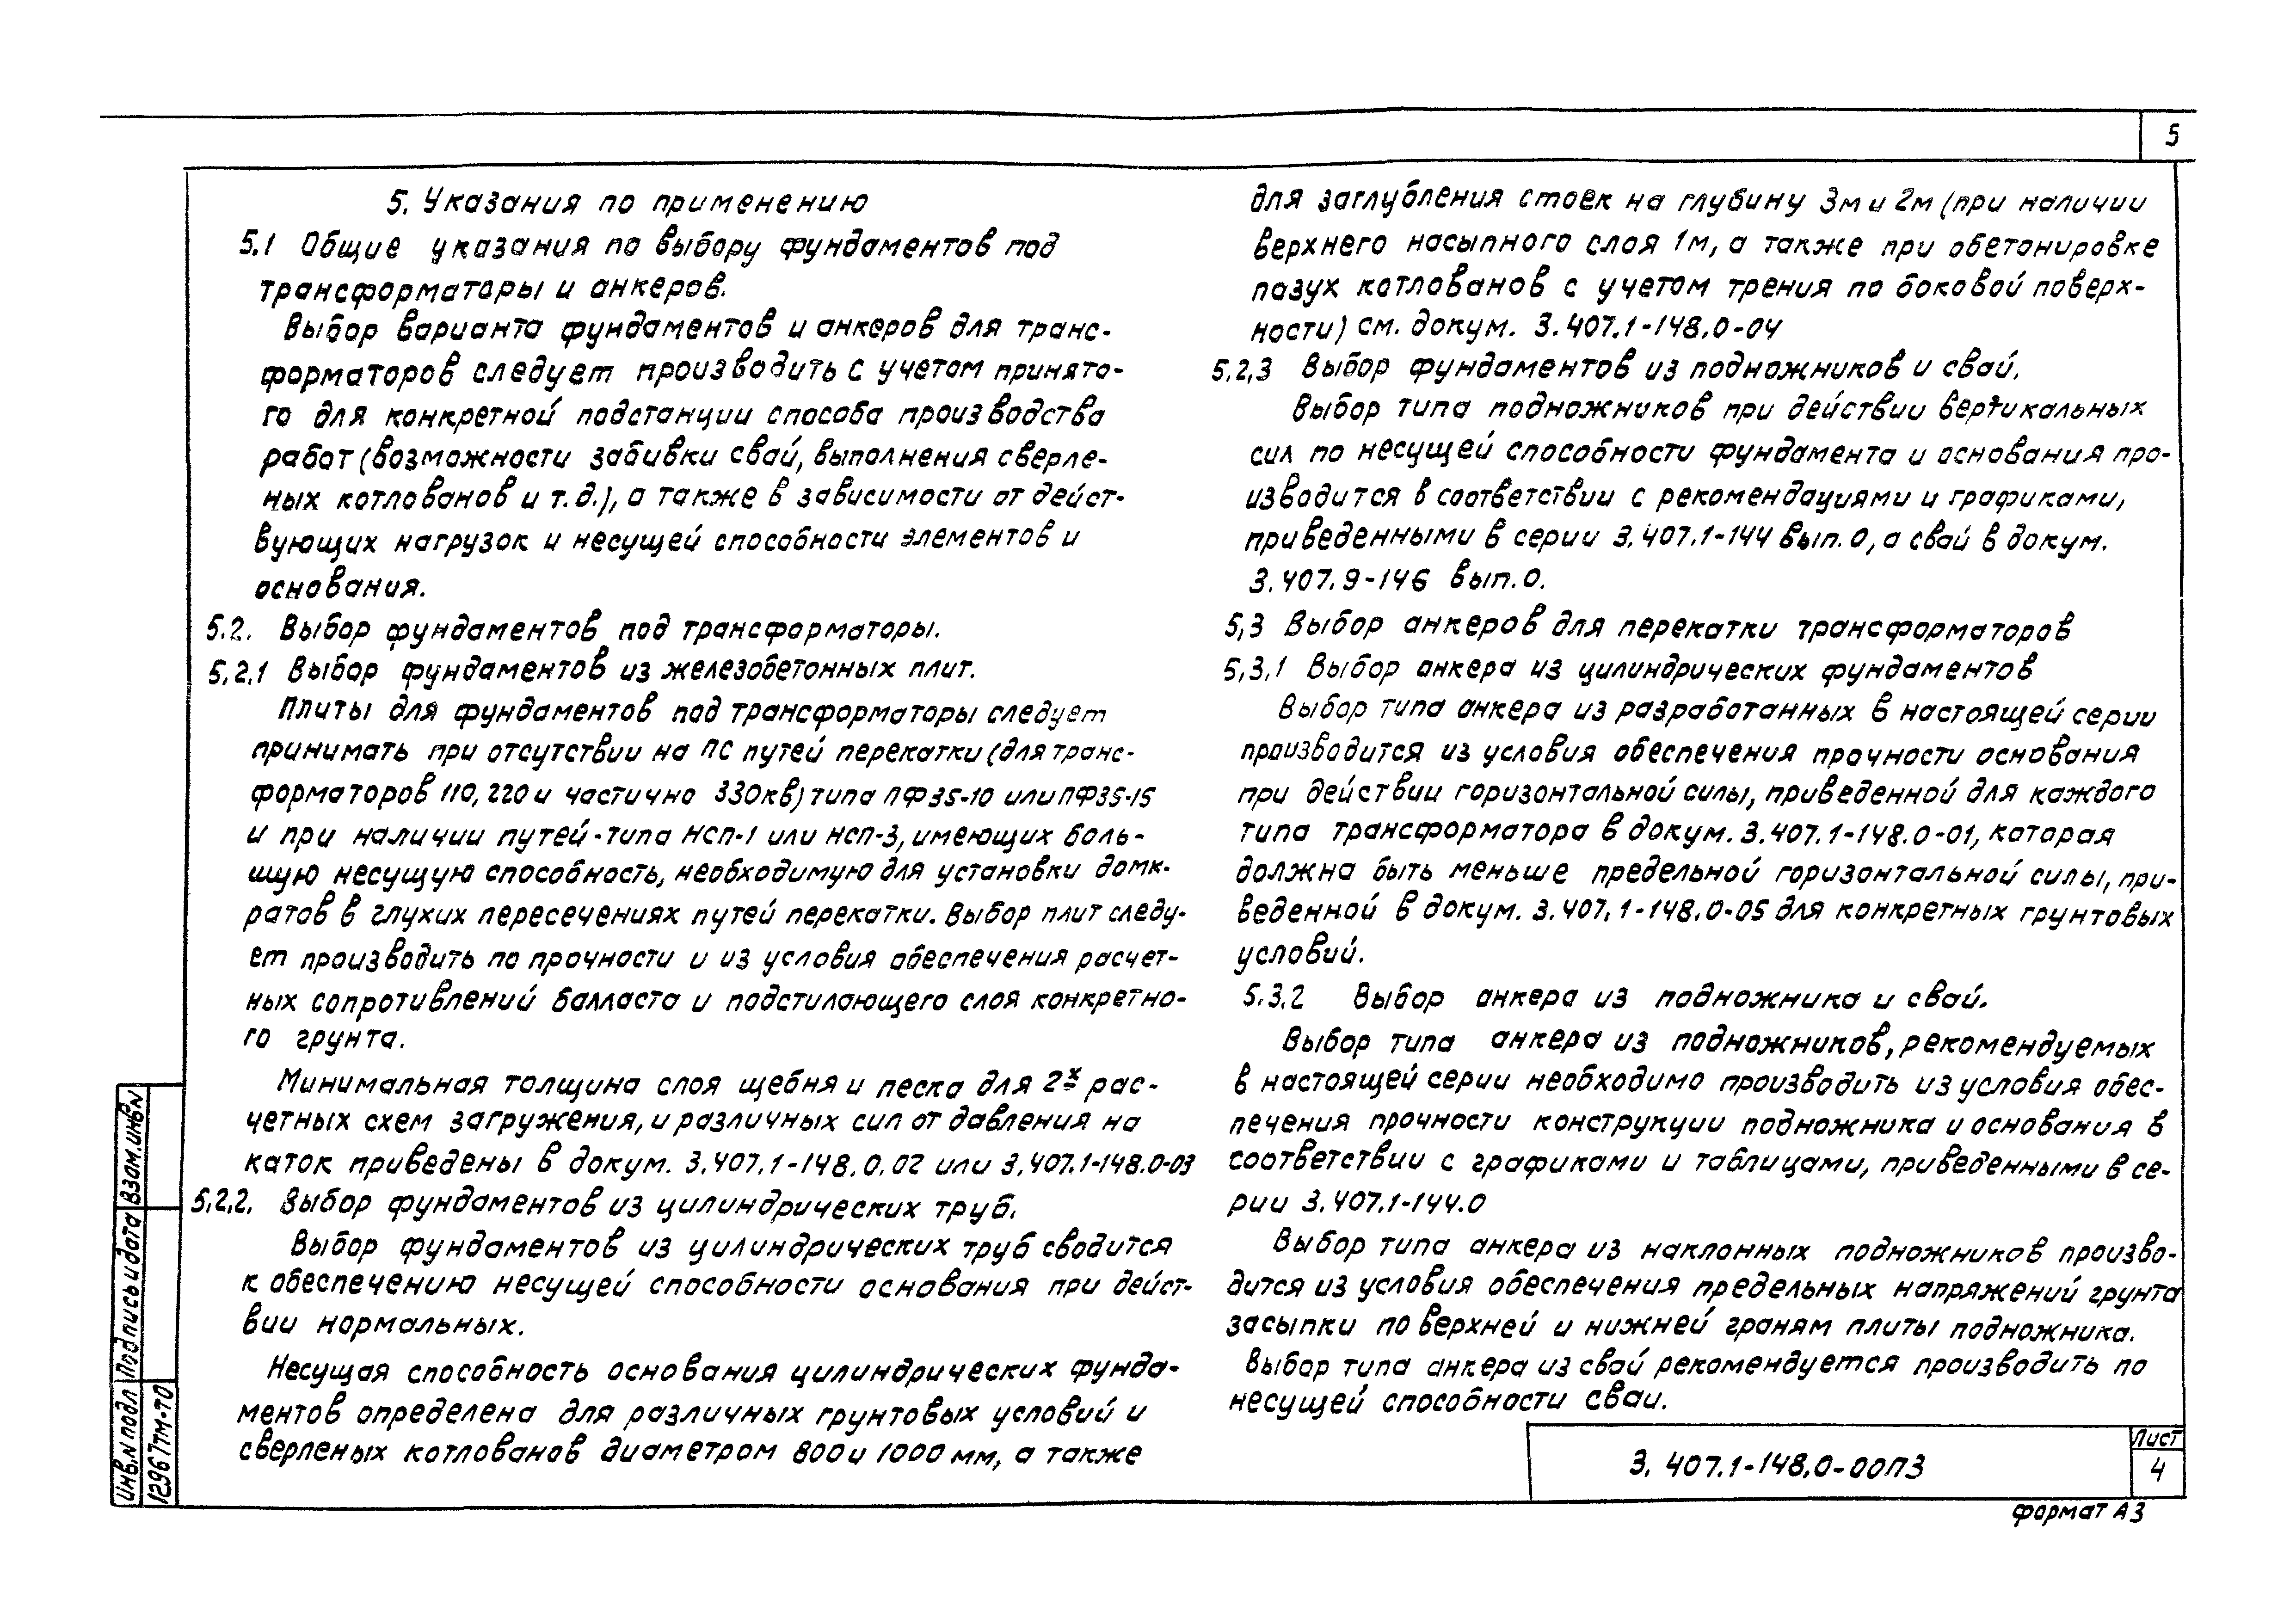 5
5. Указания по применению
5.1 Общие указания по выбору фундаментов под
трансформаторы и анкеров.
Выбор варианта фундаментов и анкеров для транс-
форматоров следует производить с учетом принято-
го для конкретной подстанции способа производства
работ (возможности забивки свай, выполнения сверле-
ных котлованов и т.д.), а также в зависимости от дейст-
вующих нагрузок и несущей способности элементов и
основания.
5.2. Выбор фундаментов под трансформаторы.
5.2.1 Выбор фундаментов из железобетонных плит.
Плиты для фундаментов под трансформаторы следует
принимать при отсутствии на ПС путей перекатки (для транс-
форматоров 110, 220 и частично 330кв) типа ПФ35-10 или ПФ35-15
и при наличии путей-типа НСП-1 или НСП-3, имеющих боль-
шую несущую способность, необходимую для установки домк-
ратов в глухих пересечениях путей перекатки. Выбор плит следу-
ет производить по прочности и из условия обеспечения расчет-
ных сопротивлений балласта и подстилающего слоя конкретно-
го грунта.
Минимальная толщина слоя щебня и песка для 2х рас-
четных схем загружения, и различных сил от давления на
каток приведены в докум. 3.407.1-148.0.02 или 3.407.1-148.0-03
5.2.2. Выбор фундаментов из цилиндрических труб.
Выбор фундаментов из цилиндрических труб сводится
к обеспечению несущей способности основания при дейст-
вии нормальных.
Несущая способность основания цилиндрических фунда-
ментов определена для различных грунтовых условий и
сверленых котлованов диаметром 800 и 1000 мм, а также
для заглубления стоек на глубину 3м и 2м (при наличии
верхнего насыпного слоя 1м, а также при обетонировке
пазух котлованов с учетом трения по боковой поверх-
ности) см. докум. 3.407.1-148.0-04
5.2.3 Выбор фундаментов из подножников и свай.
Выбор типа подножников при действии вертикальных
сил по несущей способности фундамента и основания про-
изводится в соответствии с рекомендациями и графиками,
приведенными в серии 3.407.1-144 вып.0, а свай в докум.
3.407.9-146 вып.0.
5.3 Выбор анкеров для перекатки трансформаторов
5.3.1 Выбор анкера из цилиндрических фундаментов
Выбор типа анкера из разработанных в настоящей серии
производится из условия обеспечения прочности основания
при действии горизонтальной силы, приведенной для каждого
типа трансформатора в докум. 3.407.1-148.0-01, которая
должна быть меньше предельной горизонтальной силы, при-
веденной в докум. 3.407.1-148.0-05 для конкретных грунтовых
условий.
5.3.2 Выбор анкера из подножника и свай.
Выбор типа анкера из подножников, рекомендуемых
в настоящей серии необходимо производить из условия обес-
печения прочности конструкции подножника и основания в
соответствии с графиками и таблицами, приведенными в се-
рии 3.407.1-144.0
Выбор типа анкера из наклонных подножников произво-
дится из условия обеспечения предельных напряжений грунта
засыпки по верхней и нижней граням плиты подножника.
Выбор типа анкера из свай рекомендуется производить по
несущей способности сваи.
Инв.N подл Подпись и дата Взам.инвN
12967тм-т0
3. 407.1-148.0-00ПЗ
Лист
4
формат А3